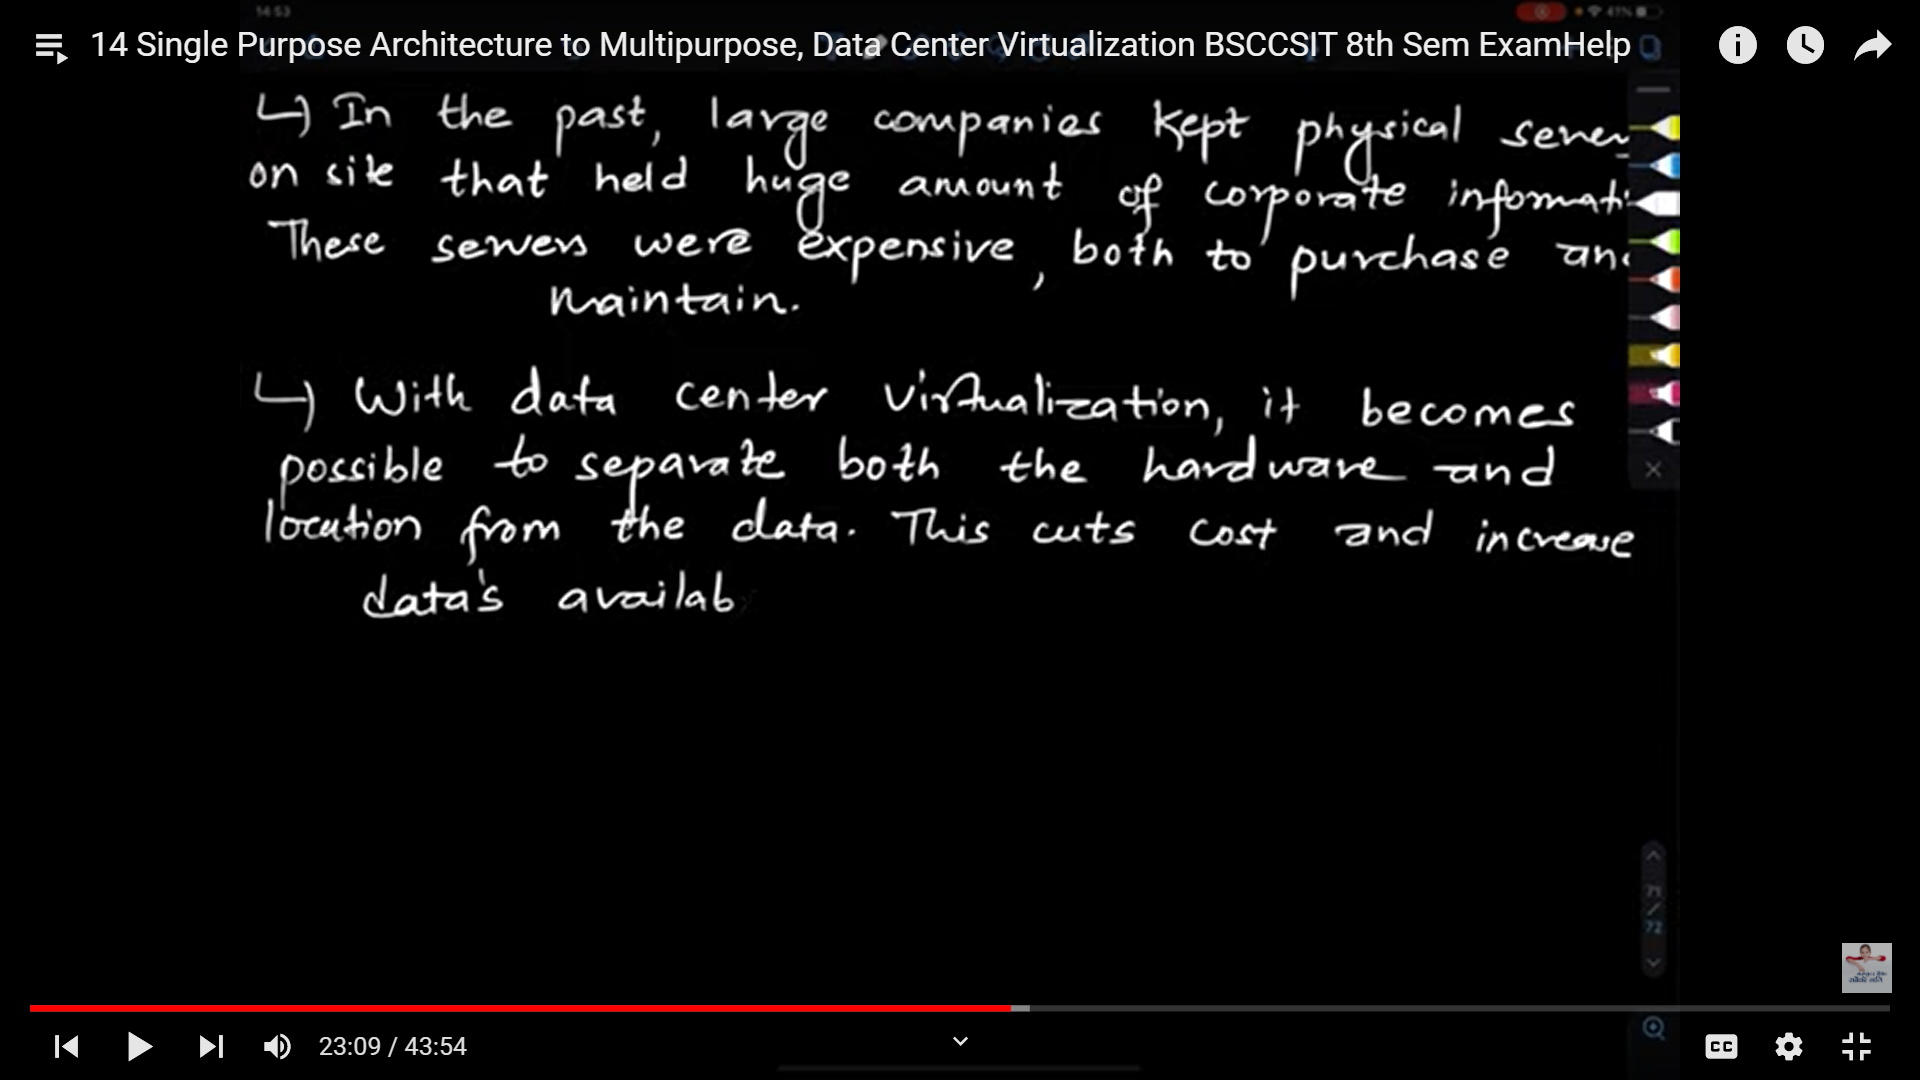 14:53
41%
14 Single Purpose Architecture to Multipurpose, Data Center Virtualization BSCCSIT 8th Sem ExamHelp
↳ In the past, large companies kept physical server
on site that held huge amount of corporate informati
These servers were expensive, both to purchase and
maintain.
↳ With data center virtualization, it becomes
possible to separate both the hardware and
location from the data. This cuts cost and increase
data's availab
71
/
72
23:09 / 43:54
CC